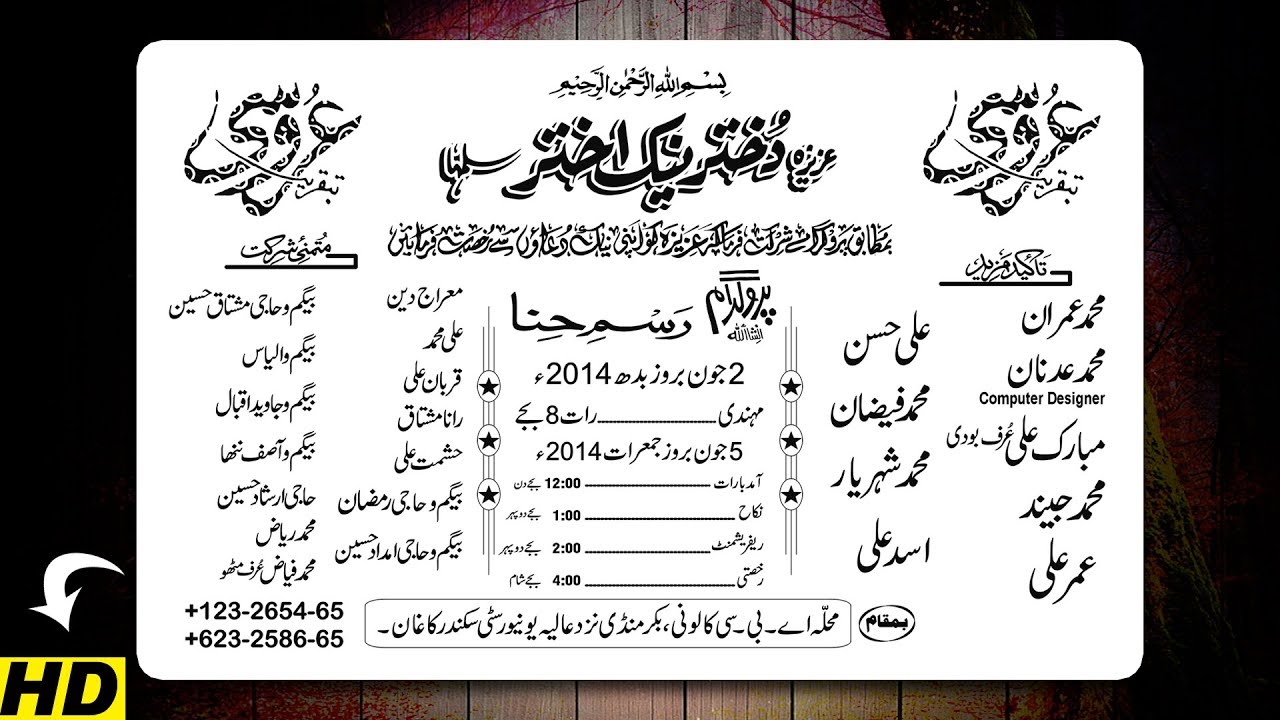 بِسْمِ اللهِ الرَّحْمٰنِ الرَّحِيْمِ
عزیزہ دُختر نیک اختر سلمہا
بمطابق پروگرام شرکت فرما کر عزیزہ کو اپنی نیک دُعاؤں سے رُخصت فرمائیں
بتقریب عُروسی
تاکید مزید
محمد عمران
محمد عدنان
Computer Designer
مبارک علی عُرف بودی
محمد جنید
عمر علی
علی حسن
محمد فیضان
محمد شہریار
اسد علی
پروگرام انشاءاللہ
رسمِ حِنا
2 جون بروز بدھ 2014ء
مہندی ــــــــــــ رات 8 بجے
5 جون بروز جمعرات 2014ء
آمد بارات ــــــــــــ 12:00 بجے دن
نکاح ــــــــــــ 1:00 بجے دوپہر
ریفریشمنٹ ــــــــــــ 2:00 بجے دوپہر
رخصتی ــــــــــــ 4:00 بجے شام
بتقریب عُروسی
مُتمنیٔ شرکت
معراج دین
علی محمد
قربان علی
رانا مشتاق
حشمت علی
بیگم و حاجی رمضان
بیگم و حاجی امداد حسین
بیگم و حاجی مشتاق حسین
بیگم و الیاس
بیگم و جاوید اقبال
بیگم و آصف ننھا
حاجی ارشاد حسین
محمد ریاض
محمد فیاض عُرف مٹھو
بمقام
محلّہ اے۔بی۔سی کالونی، بکر منڈی نزد عالیہ یونیورسٹی سکندر کاغان۔
+123-2654-65
+623-2586-65
HD